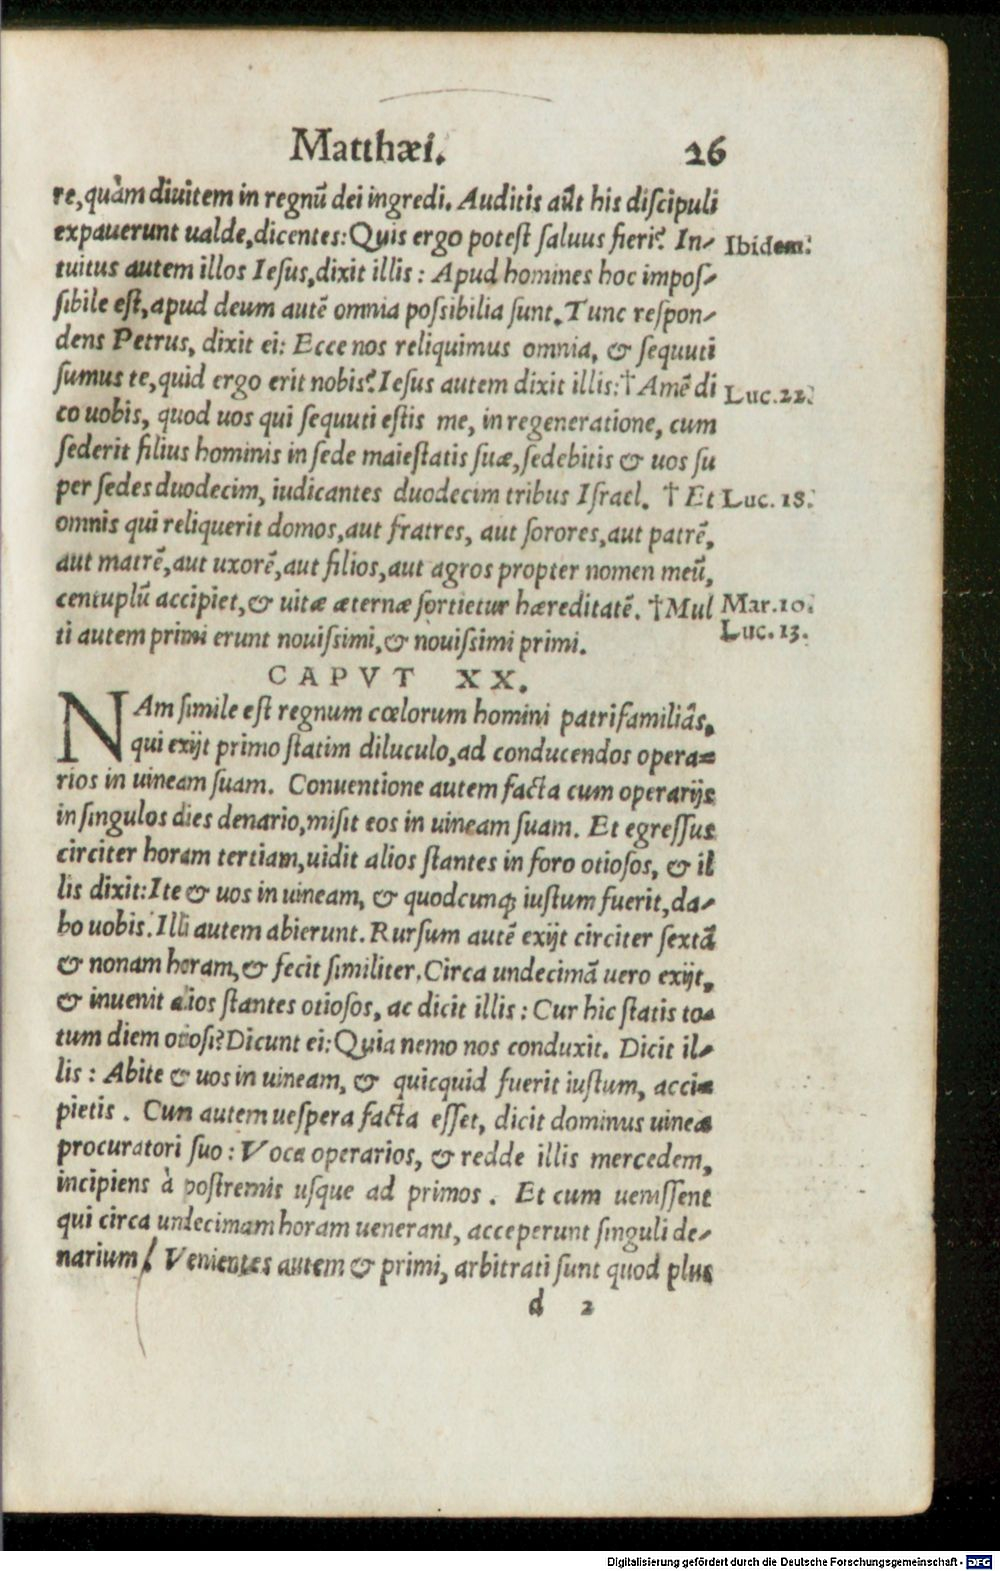 Matthæi. 26
re, quàm diuitem in regnũ dei ingredi. Auditis aũt his diſcipuli
expauerunt ualde, dicentes: Quis ergo poteſt ſaluus fieri? In- Ibidem.
tuitus autem illos Ieſus, dixit illis: Apud homines hoc impoſ-
ſibile eſt, apud deum autẽ omnia poſsibilia ſunt. Tunc reſpon-
dens Petrus, dixit ei: Ecce nos reliquimus omnia, & ſequuti
ſumus te, quid ergo erit nobis? Ieſus autem dixit illis: † Amẽ di Luc. 22.
co uobis, quod uos qui ſequuti eſtis me, in regeneratione, cum
ſederit filius hominis in ſede maieſtatis ſuæ, ſedebitis & uos ſu
per ſedes duodecim, iudicantes duodecim tribus Iſrael. † Et Luc. 18.
omnis qui reliquerit domos, aut fratres, aut ſorores, aut patrẽ,
aut matrẽ, aut uxorẽ, aut filios, aut agros propter nomen meũ,
centuplũ accipiet, & uitæ æternæ ſortietur hæreditatẽ. † Mul Mar. 10.
ti autem primi erunt nouiſsimi, & nouiſsimi primi. Luc. 13.
CAPVT XX.
NAm ſimile eſt regnum cœlorum homini patrifamiliâs,
qui exijt primo ſtatim diluculo, ad conducendos opera-
rios in uineam ſuam. Conuentione autem facta cum operarijs
in ſingulos dies denario, miſit eos in uineam ſuam. Et egreſſus
circiter horam tertiam, uidit alios ſtantes in foro otioſos, & il
lis dixit: Ite & uos in uineam, & quodcunq; iuſtum fuerit, da-
bo uobis. Illi autem abierunt. Rurſum autẽ exijt circiter ſextã
& nonam horam, & fecit ſimiliter. Circa undecimã uero exijt,
& inuenit alios ſtantes otioſos, ac dicit illis: Cur hic ſtatis to-
tum diem otioſi? Dicunt ei: Quia nemo nos conduxit. Dicit il-
lis: Abite & uos in uineam, & quicquid fuerit iuſtum, acci-
pietis. Cun autem ueſpera facta eſſet, dicit dominus uineæ
procuratori ſuo: Voca operarios, & redde illis mercedem,
incipiens à poſtremis uſque ad primos. Et cum ueniſſent
qui circa undecimam horam uenerant, acceperunt ſinguli de-
narium. Venientes autem & primi, arbitrati ſunt quod plus
d 2
Digitalisierung gefördert durch die Deutsche Forschungsgemeinschaft - DFG